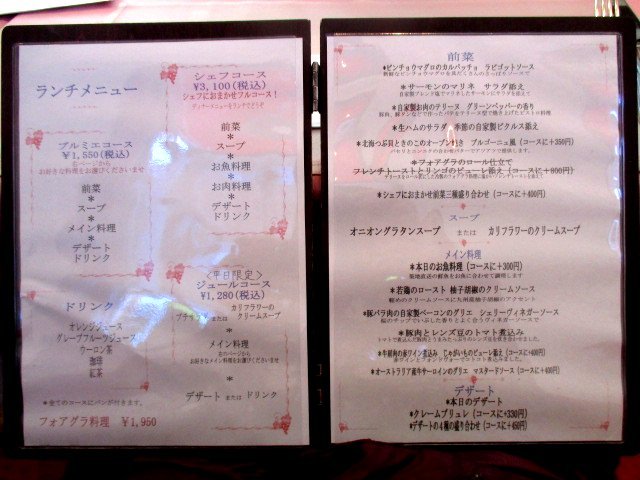 ランチメニュー
プルミエコース
¥1,550(税込)
右ページから
お好きな料理をお選びくださいませ
前菜
*
スープ
*
メイン料理
*
デザート
ドリンク
ドリンク
オレンジジュース
グレープフルーツジュース
ウーロン茶
珈琲
紅茶
*全てのコースにパンが付きます。
フォアグラ料理 ¥1,950
シェフコース
¥3,100(税込)
シェフにおまかせフルコース!
ディナーメニューをランチでどうぞ
前菜
*
スープ
*
お魚料理
*
お肉料理
*
デザート
ドリンク
<平日限定>
ジュールコース
¥1,280(税込)
または
カリフラワーの
クリームスープ
*
メイン料理
右のページから
お好きなメイン料理をお選びくださいませ
*
デザート または ドリンク
前菜
*ビンチョウマグロのカルパッチョ ラビゴットソース
*サーモンのマリネ サラダ添え
*自家製お肉のテリーヌ グリーンペッパーの香り
*生ハムのサラダ 季節の自家製ピクルス添え
*北海つぶ貝ときのこのオーブン焼き ブルゴーニュ風(コースに+350円)
*フォアグラのロール仕立て
フレンチトーストとリンゴのピューレ添え(コースに+800円)
*シェフにおまかせ前菜三種盛り合わせ(コースに+400円)
スープ
オニオングラタンスープ または カリフラワーのクリームスープ
メイン料理
*本日のお魚料理(コースに+300円)
築地直送の鮮魚をお魚に合わせて調理します
*若鶏のロースト 柚子胡椒のクリームソース
軽めのクリームソースに九州産柚子胡椒のアクセント
*豚バラ肉の自家製ベーコンのグリエ シェリーヴィネガーソース
*豚肉とレンズ豆のトマト煮込み
*牛頬肉の赤ワイン煮込み じゃがいものピューレ添え(コースに+600円)
*オーストラリア産牛サーロインのグリエ マスタードソース(コースに+400円)
デザート
*本日のデザート
*クレームブリュレ(コースに+330円)
*デザートの4種の盛り合わせ(コースに+450円)